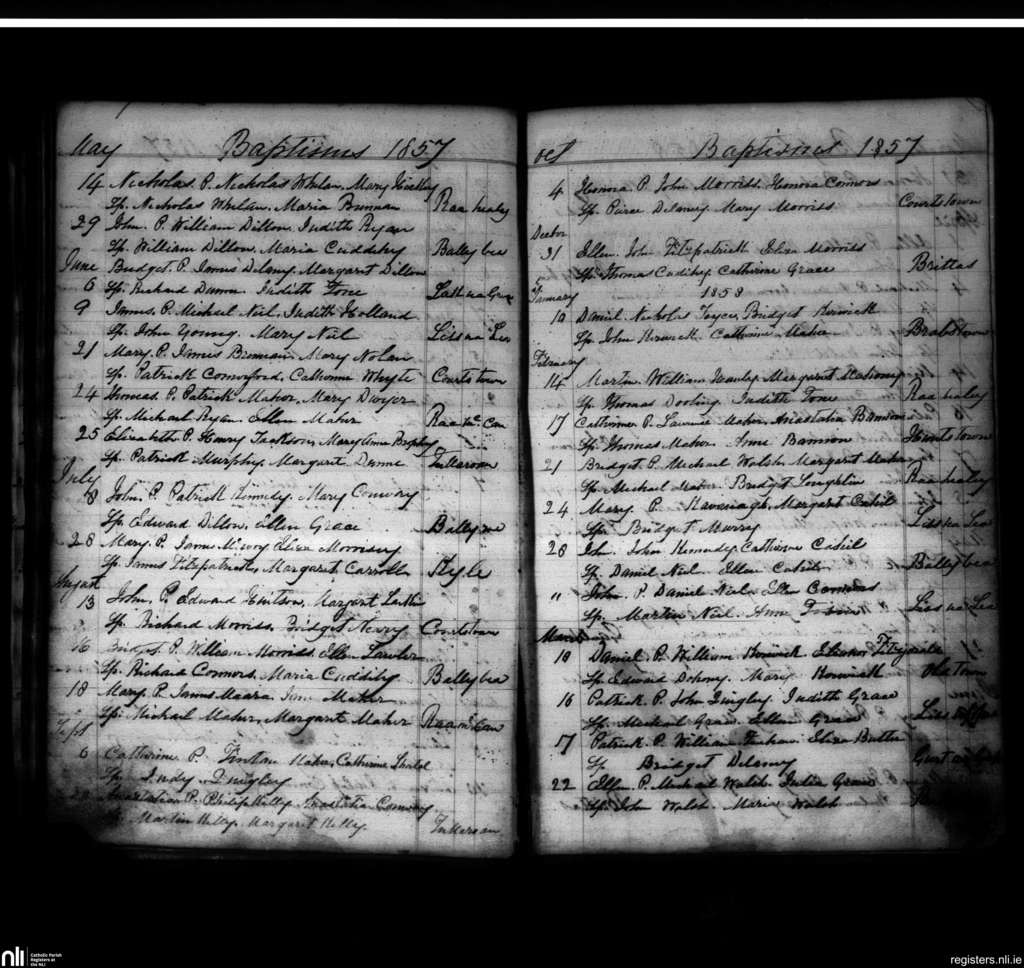 May Baptisms 1857
14 Nicholas. P. Nicholas Whelan. Mary
Sp. Nicholas Whelan. Maria Brennan Raa healy
29 John. P. William Dillon. Judith Ryan
Sp. William Dillon. Maria Cuddihy Ballybea
June Bridget. P. James Delany. Margaret Dillon
6 Sp. Richard Dunne. Judith Fone
9 James. P. Michael Neil. Judith Holland
Sp. John Young. Mary Neil Liss na Lea
21 Mary. P. James Brennan. Mary Nolan
Sp. Patrick Comerford. Catherine Whyte Courtstown
24 Thomas. P. Patrick Maher. Mary Dwyer
Sp. Michael Ryan. Ellen Maher
25 Elizabeth P. Henry Jackson. Mary Anne Brophy
Sp. Patrick Murphy. Margaret Dunne Tullaroan
July
8 John. P. Patrick Kennedy. Mary Conway
Sp. Edward Dillon. Ellen Grace
28 Mary. P. James Eliza Morrissy
Sp. James Fitzpatrick. Margaret Carroll Kyle
August
13 John. P. Edward Margaret
Sp. Richard Morriss. Bridget Courtstown
16 Bridget. P. William Morriss. Ellen Lawler
Sp. Richard Connors. Maria Cuddihy Ballybea
18 Mary. P. James Meara. Maher
Sp. Michael Maher. Margaret Maher
Sept
6 Catherine P. Fintan Maher. Catherine
Sp. Judy Quigley
Anastatia P. Philip Kelly. Anastatia Conway
Sp. Martin Kelly. Margaret Kelly. Tullaroan
Oct Baptisms 1857
4 Honora P. John Morriss. Honora Connors
Sp. Pierce Delaney. Mary Morriss Courtstown
Decbr
31 Ellen. John Fitzpatrick. Eliza Morriss
Sp. Thomas Cudihy. Catherine Grace Brittas
January 1858
10 Daniel. Nicholas Bridget Kerwick
Sp. John Kerwick. Catherine Maher Brabstown
February
14 Martin. William Healy. Margaret
Sp. Thomas Dooling. Judith Fone Raa healy
17 Catherine P. Laurence Maher. Anastatia Bannon
Sp. Thomas Maher. Anne Bannon Huntstown
21 Bridget. P. Michael Walsh. Margaret Maher
Sp. Michael Maher. Bridget Loughlin Raa healy
24 Mary. P. Kavenagh. Margaret Cahil
Sp. Bridget Murry Liss na Lea
28 John Kennedy. Catherine Cahil
Sp. Daniel Neil. Ellen Cahil Ballybea
" John. P. Daniel Neil. Ellen
Sp. Martin Neil. Anne Tobin Liss na Lea
March
10 Daniel. P. William Kerwick. Eleanor Fitzgerald
Sp. Edward Dohony. Mary Kerwick Oldtown
16 Patrick. P. John Quigley. Judith Grace
Sp. Michael Grace. Ellen Grace
17 Patrick. P. William Eliza Butler
Sp. Bridget Delany
22 Ellen. P. Michael Walsh. Julia Grace
Sp. John Walsh. Maria Walsh
nli
Catholic Parish
Registers at
the NLI
registers.nli.ie